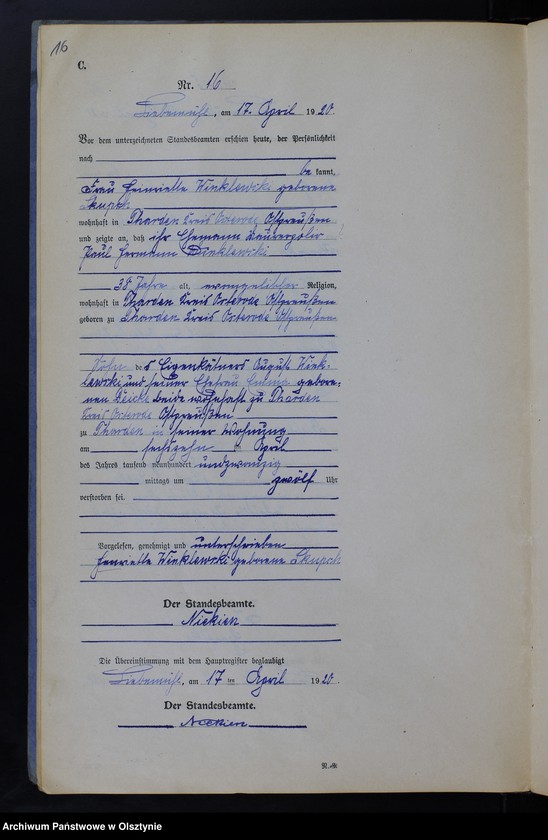 16
C.
Nr. 16
Liebemühl, am 17. April 1920
Vor dem unterzeichneten Standesbeamten erschien heute, der Persönlichkeit
nach
bekannt,
Frau Henriette Winklewski geborene
Skupch
wohnhaft in Tharden Kreis Osterode Ostpreußen
und zeigte an, daß ihr Ehemann Maurerpolier
Paul Hermann Winklewski
38 Jahre alt, evangelischer Religion,
wohnhaft in Tharden Kreis Osterode Ostpreußen
geboren zu Tharden Kreis Osterode Ostpreußen
Sohn des Eigenkätners August Wink-
lewski und seiner Ehefrau Emma gebore-
nen beide wohnhaft zu Tharden
Kreis Osterode Ostpreußen
zu Tharden in seiner Wohnung
am sechszehn April
des Jahres tausend neunhundert undzwanzig
mittags um zwölf Uhr
verstorben sei.
Vorgelesen, genehmigt und unterschrieben
Henriette Winklewski geborene Skupch
Der Standesbeamte.
Nickien
Die Übereinstimmung mit dem Hauptregister beglaubigt
Liebemühl, am 17 ten April 1920.
Der Standesbeamte.
Nickien
Archiwum Państwowe w Olsztynie